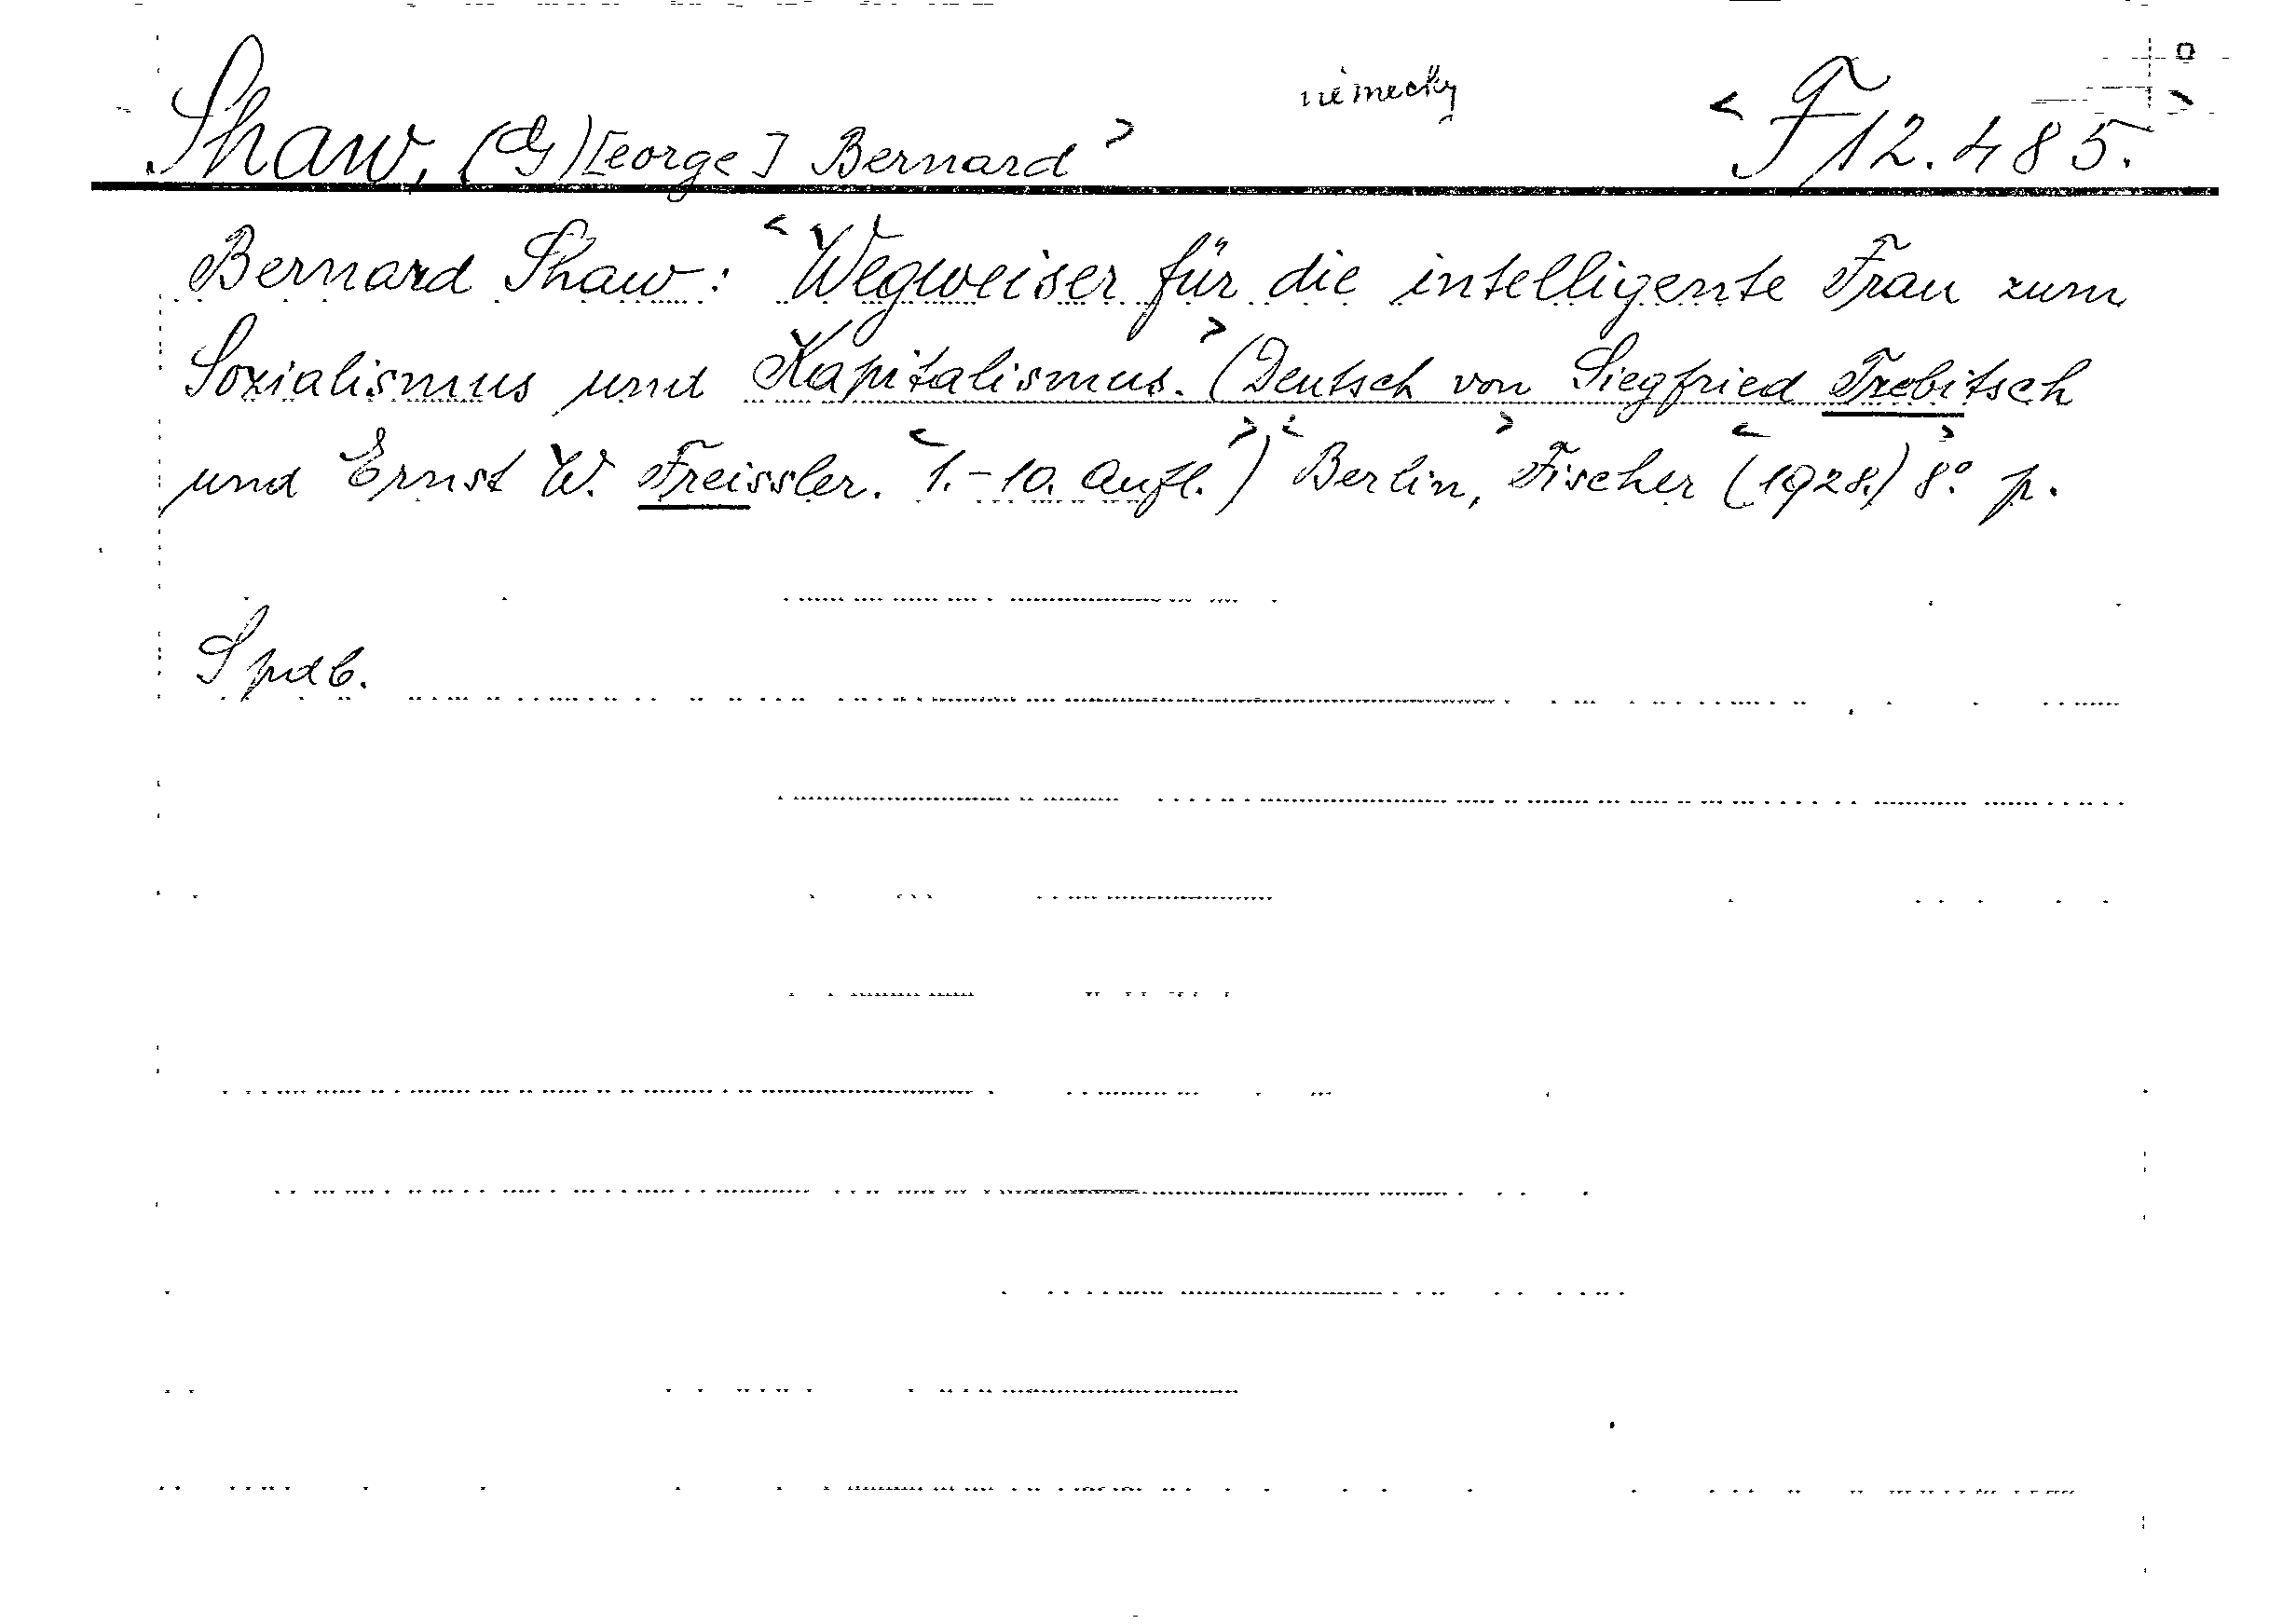 Shaw, (G)[eorge] Bernard> německy <F 12.485.>
Bernard Shaw: <Wegweiser für die intelligente Frau zum
Sozialismus und Kapitalismus.> (Deutsch von Siegfried Trebitsch
und Ernst W. Freissler. <1.-10. Aufl.>) <Berlin, Fischer> <(1928.)> 8° p.
Spdb.